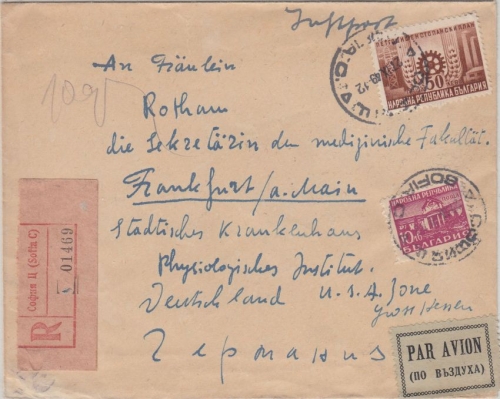 Luftpost
An Fräulein
Rotham
die Sekretärin der medizinische Fakultät.
Frankfurt/a. Main
Städtisches Krankenhaus
Physiologisches Institut.
Deutschland U.S.A. Zone
Gross Hessen
Германия
R
София Ц (Sofia C)
01469
50
НАРОДНА РЕПУБЛИКА БЪЛГАРИЯ
НАРОДНА РЕПУБЛИКА
БЪЛГАРИЯ
SOFIA
PAR AVION
(ПО ВЪЗДУХА)